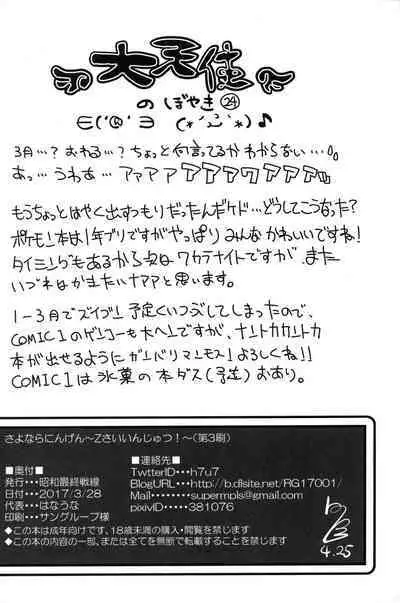 大天使
のぼやき㉔
∈(´®`∋ (*´ω`*)♪
3月…?おわる…?ちょっと何言ってるかわからない…。。
あっ…うわぁ…アァアァアアアアアァァ
もうちょっとはやく出すつもりだったんだケド…どうしてこうなった?
ポケモン本は1年ブリですがやっぱりみんなかわいいですね!
タイミングもあるから次はワカラナイトですが、また
いづれはがまたいナァァと思います。
1-3月でズイブン予定くいつぶしてしまったので、
COMIC1のゲンコーも大ヘンですが、ナントカカントカ
本が出せるようにガンバリマンモス!よろしくね!!
COMIC1は氷菓の本ダス(予定)おわり。
さよならにんげん~Zさいいんじゅつ!~(第3刷)
■奥付
発行…昭和最終戦線
日付…2017/3/28
代表…はなうな
印刷…サングループ様
■連絡先
TwtterID…h7u7
BlogURL…http://b.dlsite.net/RG17001/
Mail………supermpls@gmail.com
pixivID……381076
◆この本は成年向けです、18歳未満の購入・閲覧を禁じます
◆この本の内容の一部、または全てを無断で転載することを禁じます
4.25